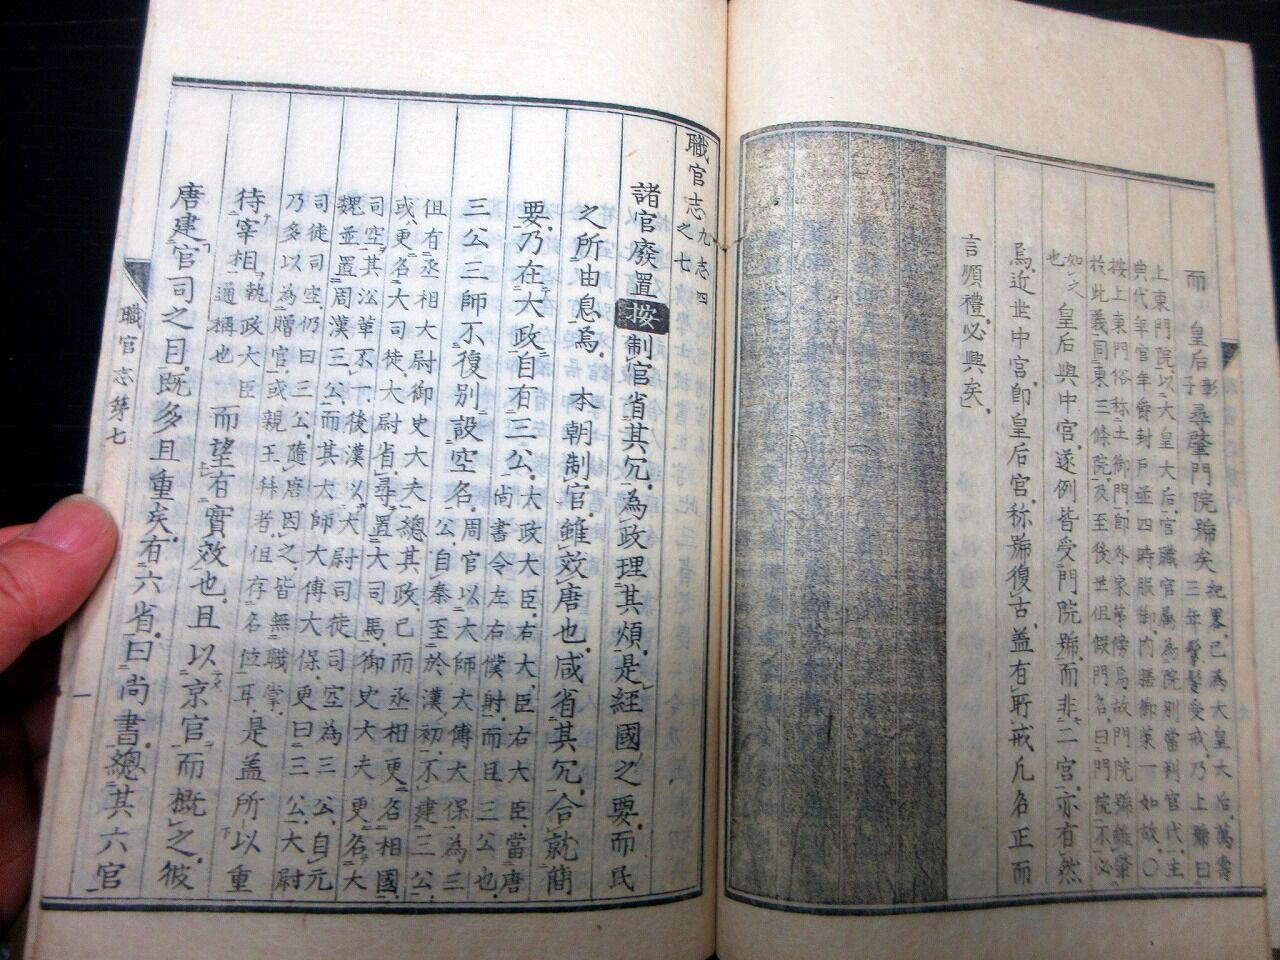 而　皇后彰子尋肇門院號矣
紀畧已為大皇大后萬壽
三年鬢髮受戒乃上號曰
上東門院以大皇大后官職官属為院別當判官代主
典代年官年爵封戶並四時服御内膳御菜一如故〇
按上東門俗称土御門即外家第傍焉故門院號雖肇
於此義同東三條院及至後世但假門名曰門院不必
如之也
皇后與中宮遂例皆受門院號而非二宮亦有然
焉近世中宮即皇后宮称號復古盖有所戒凡名正而
言順禮必興矣
職官志九志四之七
諸官廢置按制官省其冗為政理其煩是經國之要而民
之所由息焉　本朝制官雖效唐也咸省其冗合就簡
要乃在大政自有三公
大政大臣右大臣當唐
尚書令左右僕射而且三公也
三公三師不復別設空名
周官以大師大傅大保為三
公自秦至於漢初不建三公
但有丞相大尉御史大夫總其政已而丞相更名相國
或更名大司徒大尉省尋置大司馬御史大夫更名大
司空其㳂革不一後漢以大尉司徒司空為三公自元
魏並置周漢三公而其大師大傅大保更曰三公大尉
司徒司空仍曰三公隨唐因之皆無職掌
乃多以為贈官或親王拜者但存名位耳是盖所以重
待宰相
執政大臣通稱也
而望有實效也且以京官而概之彼
唐建官司之目既多且重矣有六省曰尚書總其六官
職官志第七
一